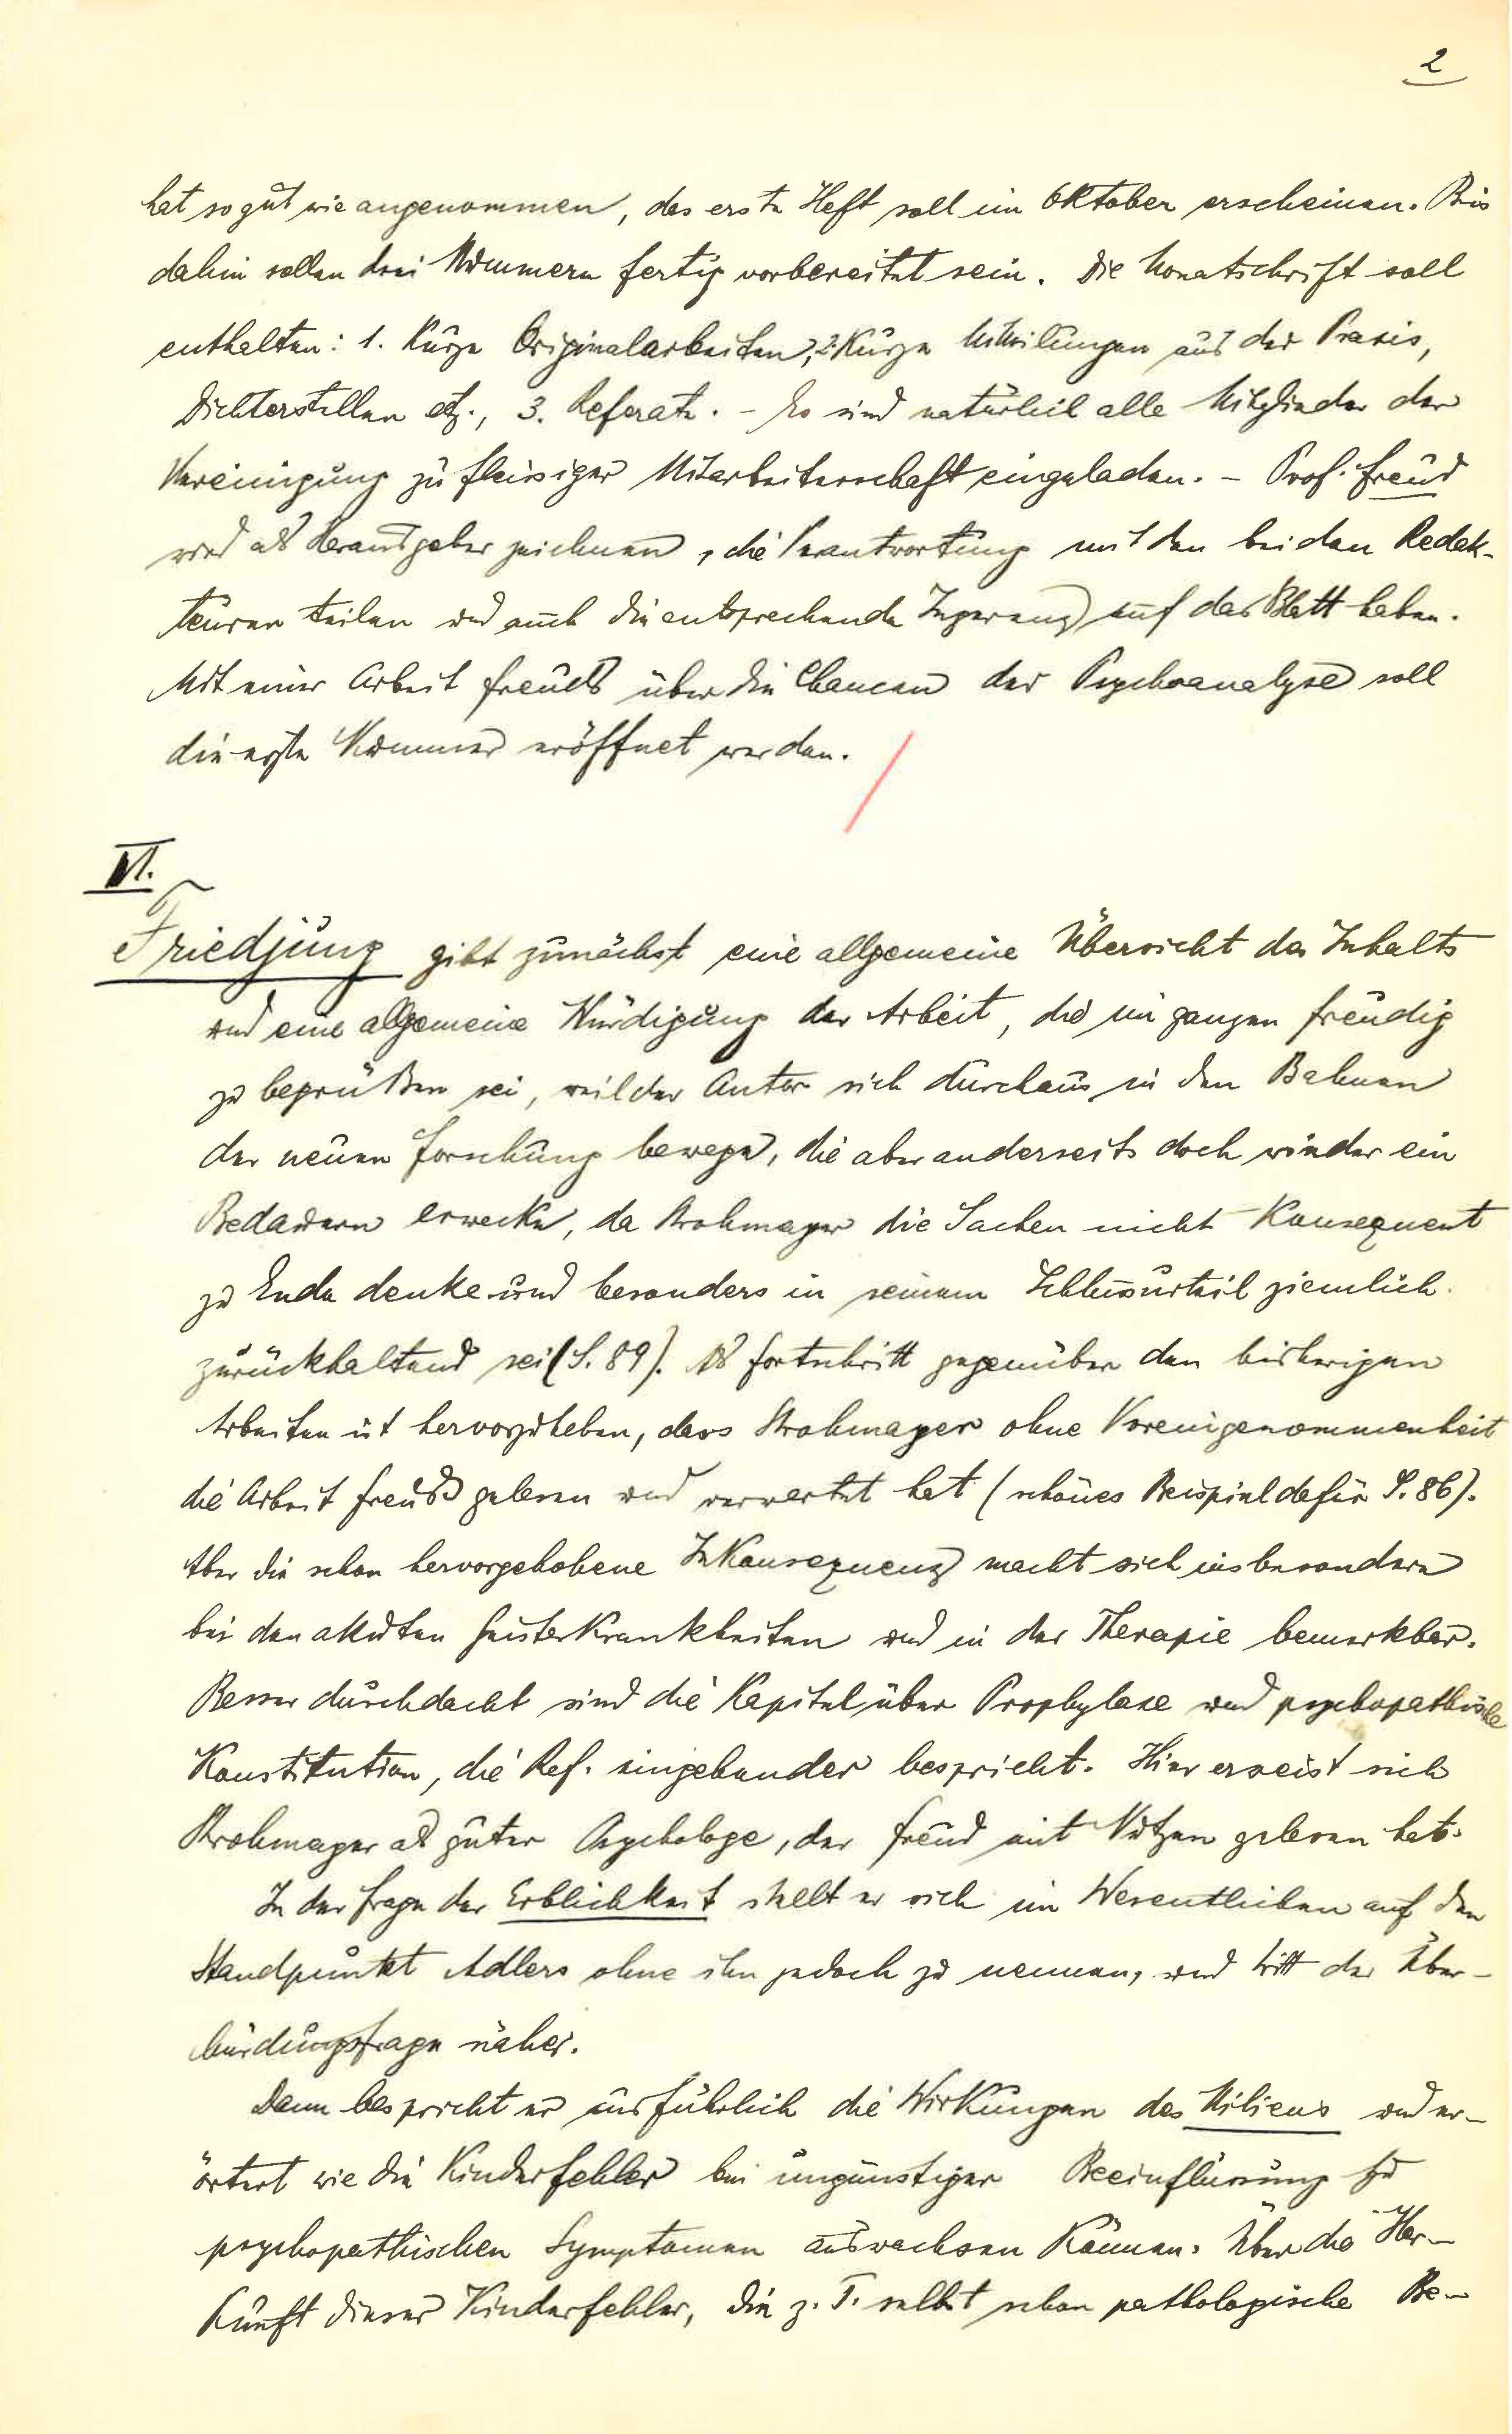 2
hat so gut wie angenommen, das erste Heft soll im Oktober erscheinen. Bis
dahin sollen drei Nummern fertig vorbereitet sein. Die Monatschrift soll
enthalten: 1. Kurze Originalarbeiten, 2. Kurze Mitteilungen aus der Praxis,
Dichterstellen etz., 3. Referate. – Es sind natürlich alle Mitglieder der
Vereinigung zu fleissiger Mitarbeiterschaft eingeladen. – Prof. Freud
wird als Herausgeber zeichnen, die Verantwortung mit den beiden Redak-
teuren teilen und auch die entsprechende Ingerenz auf das Blatt haben.
Mit einer Arbeit Freuds über die Chancen der Psychoanalyse soll
die erste Nummer eröffnet werden.
VI.
Friedjung gibt zunächst eine allgemeine Übersicht des Inhalts
und eine allgemeine Würdigung der Arbeit, die im ganzen freudig
zu begrüßen sei, weil der Autor sich durchaus in den Bahnen
der neuen Forschung bewege, die aber anderseits doch wieder ein
Bedauern erwecke, da Strohmayer die Sachen nicht Konsequent
zu Ende denke und besonders in seinem Schlussurteil ziemlich
zurückhaltend sei (S. 89). Als Fortschritt gegenüber den bisherigen
Arbeiten ist hervorzuheben, dass Strohmayer ohne Voreingenommenheit
die Arbeit Freuds gelesen und verwertet hat (schönes Beispiel dafür S. 86).
Aber die schon hervorgehobene InKonsequenz macht sich insbesondere
bei den akuten Geisteskrankheiten und in der Therapie bemerkbar.
Besser durchdacht sind die Kapitel über Prophylaxe und psychopathische
Konstitution, die Ref. eingehender bespricht. Hier erweist sich
Strohmayer als guter Psychologe, der Freud mit Nutzen gelesen hat.
In der Frage der Erblichkeit stellt er sich im Wesentlichen auf den
Standpunkt Adlers ohne ihn jedoch zu nennen, und tritt der Über-
bürdungsfrage näher.
Dann bespricht er ausführlich die Wirkungen des Milieus und er-
örtert wie die Kinderfehler bei ungünstiger Beeinflussung zu
psychopathischen Symptomen auswachsen können. Über die Her-
kunft dieser Kinderfehler, die z. T. selbst schon pathologische Be-